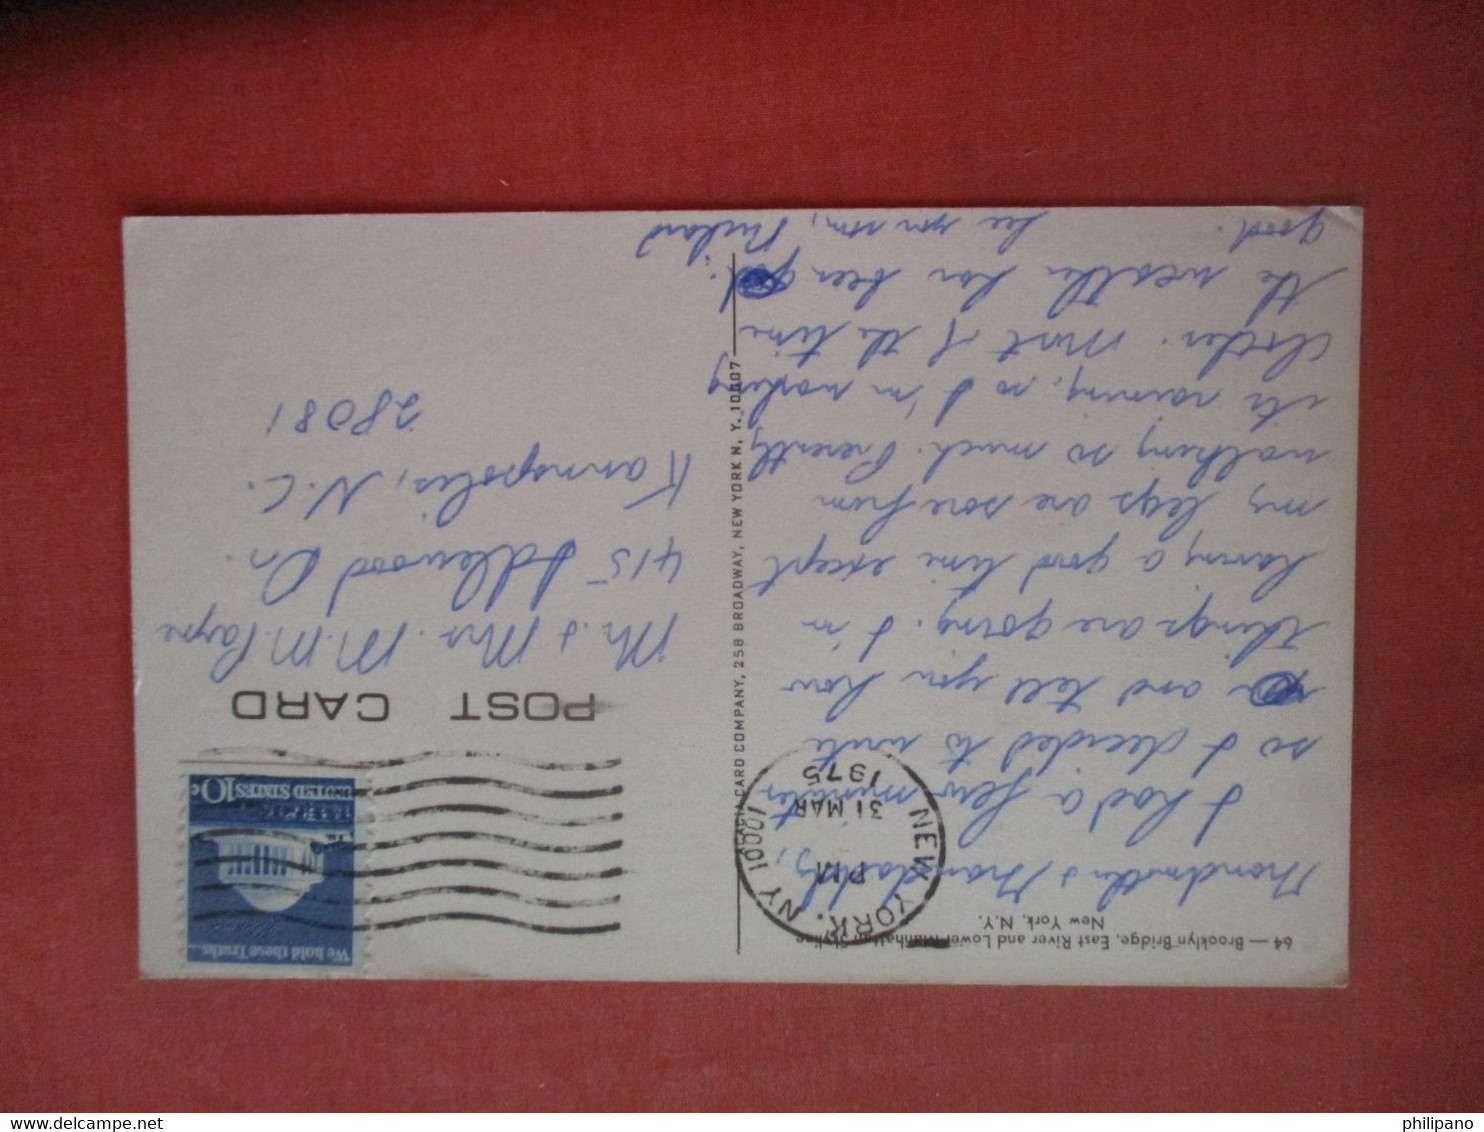 64 — Brooklyn Bridge, East River and Lower Manhattan Skyline
New York, N.Y.
Grandmother & Granddaddy,
I had a few minutes
so I decided to write
and tell you how
things are going. I'm
having a good time except
my legs are sore from
walking so much. Presently
its raining, so I'm working
chocher. Most of the time
the weather has been
good.
See you son, Richard
ACACIA CARD COMPANY, 258 BROADWAY, NEW YORK N. Y. 10007
NEW YORK, NY 10001
PM
31 MAR
1975
We hold these Truths...
UNITED STATES 10c
POST CARD
Mr. & Mrs. M. M. Payne
415 Idlewood Dr.
Kannapolis, N.C.
28081
delcampe.net
philipano